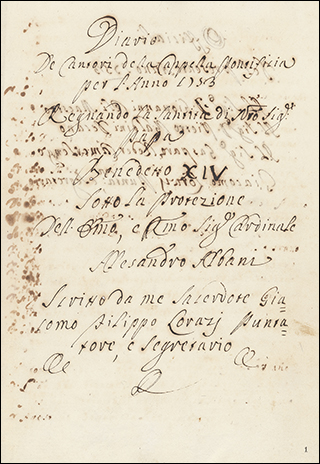 Diario
De Cantori de la Cappella Pontificia
per l'Anno 1753
Regnando La Santità di Nrô Sigre
Papa
Benedetto XIV
Sotto la Protezione
Dell' Emo, e Rmo Sigr Cardinale
Alesandro Albani
Scritto da me Sacerdote Gia=
como Filippo Lorazj Punta=
tore, e Segretario
1